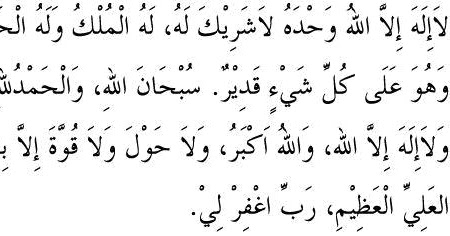 لاَإِلَهَ إِلاَّ اللهُ وَحْدَهُ لاَشَرِيْكَ لَهُ، لَهُ الْمُلْكُ وَلَهُ
وَهُوَ عَلَى كُلِّ شَيْءٍ قَدِيْرٌ. سُبْحَانَ اللهِ، وَالْحَمْدُ
وَلاَإِلَهَ إِلاَّ اللهُ، وَاللهُ اَكْبَرُ، وَلاَ حَوْلَ وَلاَ قُوَّةَ إِلاَّ
العَلِيِّ الْعَظِيْمِ، رَبِّ اغْفِرْ لِيْ.